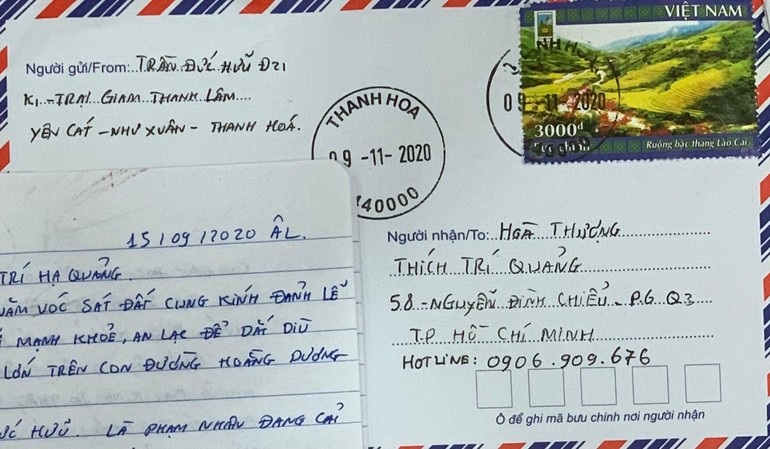 VIỆT NAM
Người gửi/From: TRẦN ĐỨC HỮU Đ21
K1 - TRẠI GIAM THANH LÂM
YÊN CÁT - NHƯ XUÂN - THANH HOÁ.
THANH HOA
09 -11- 2020
440000
09 -11- 2020
3000đ
Ruộng bậc thang Lào Cai
15/09/2020 ÂL.
TRÍ HẠ QUẢNG.
NĂM VÓC SÁT ĐẤT CUNG KÍNH ĐẢNH LỄ
MẠNH KHOẺ, AN LẠC ĐỂ DẮT DÌU
LỚN TRÊN CON ĐƯỜNG HOẰNG DƯƠNG
HỮU. LÀ PHẠM NHÂN ĐANG CẢI
Người nhận/To: HOÀ THƯỢNG
THÍCH TRÍ QUẢNG
58 - NGUYỄN ĐÌNH CHIỂU - P.6 Q3
T.P HỒ CHÍ MINH
HOTLINE: 0906.909.676
Ô để ghi mã bưu chính nơi người nhận